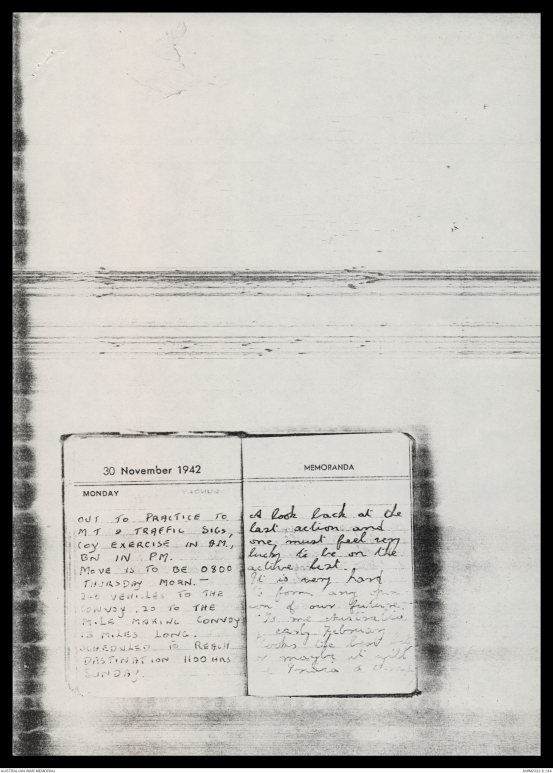 30 November 1942
MONDAY
OUT TO PRACTICE TO
M T & TRAFFIC SIGS,
COY EXERCISE IN A.M.,
BN IN P.M.
MOVE IS TO BE 0800
THURSDAY MORN. —
VEHICLES TO THE
CONVOY. 20 TO THE
MILE MAKING CONVOY
MILES LONG.
SCHEDULED TO REACH
DESTINATION 1100 HRS
SUNDAY.
MEMORANDA
A look back at the
last action and
one must feel very
lucky to be on the
active list.
It is very hard
to form any
of our future.
early February
looks the best
maybe it will
AUSTRALIAN WAR MEMORIAL